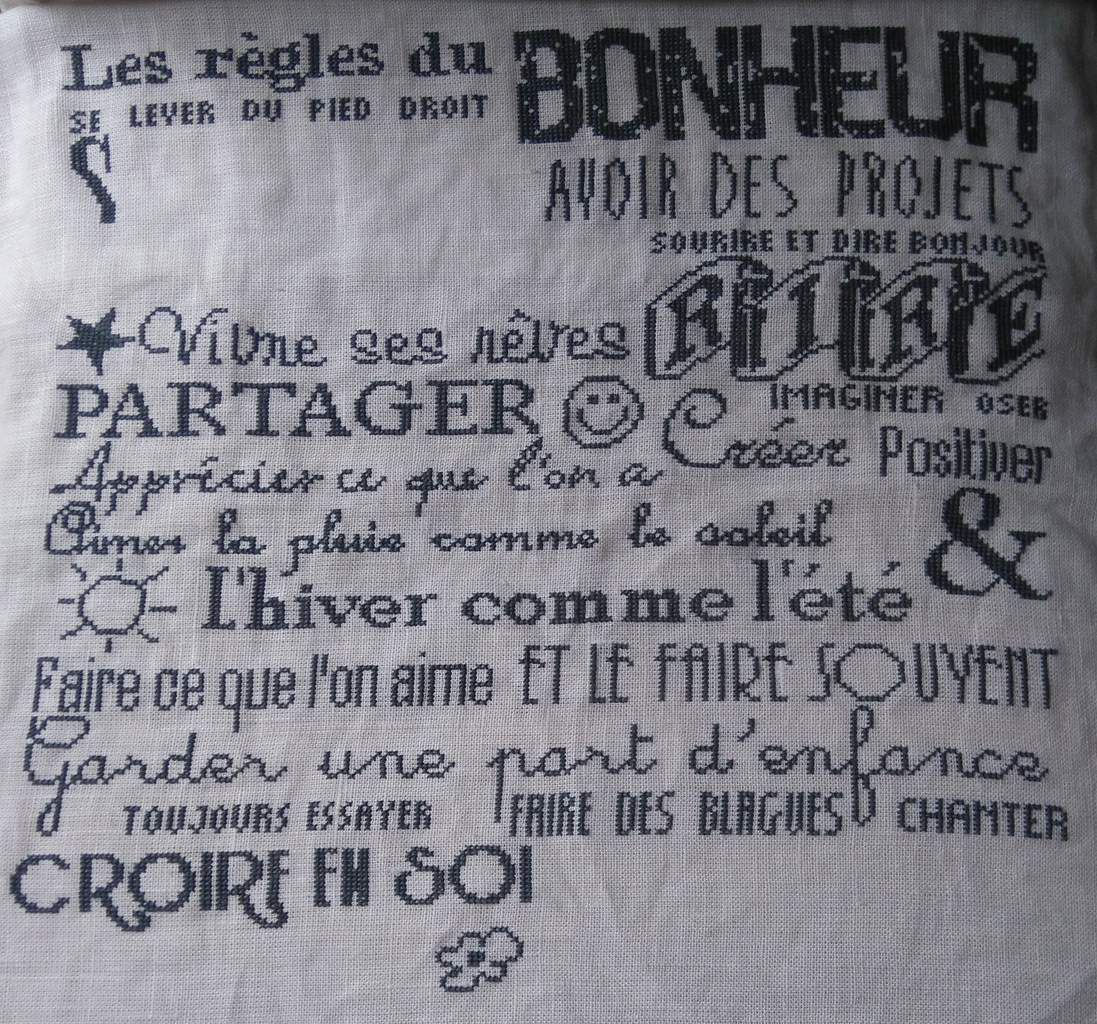 Les règles du BONHEUR
SE LEVER DU PIED DROIT
AVOIR DES PROJETS
SOURIRE ET DIRE BONJOUR
Vivre ses rêves RIRE
PARTAGER IMAGINER OSER
Créer Positiver
Apprécier ce que l'on a
Aimer la pluie comme le soleil &
L'hiver comme l'été
Faire ce que l'on aime ET LE FAIRE SOUVENT
Garder une part d'enfance
TOUJOURS ESSAYER FAIRE DES BLAGUES CHANTER
CROIRE EN SOI